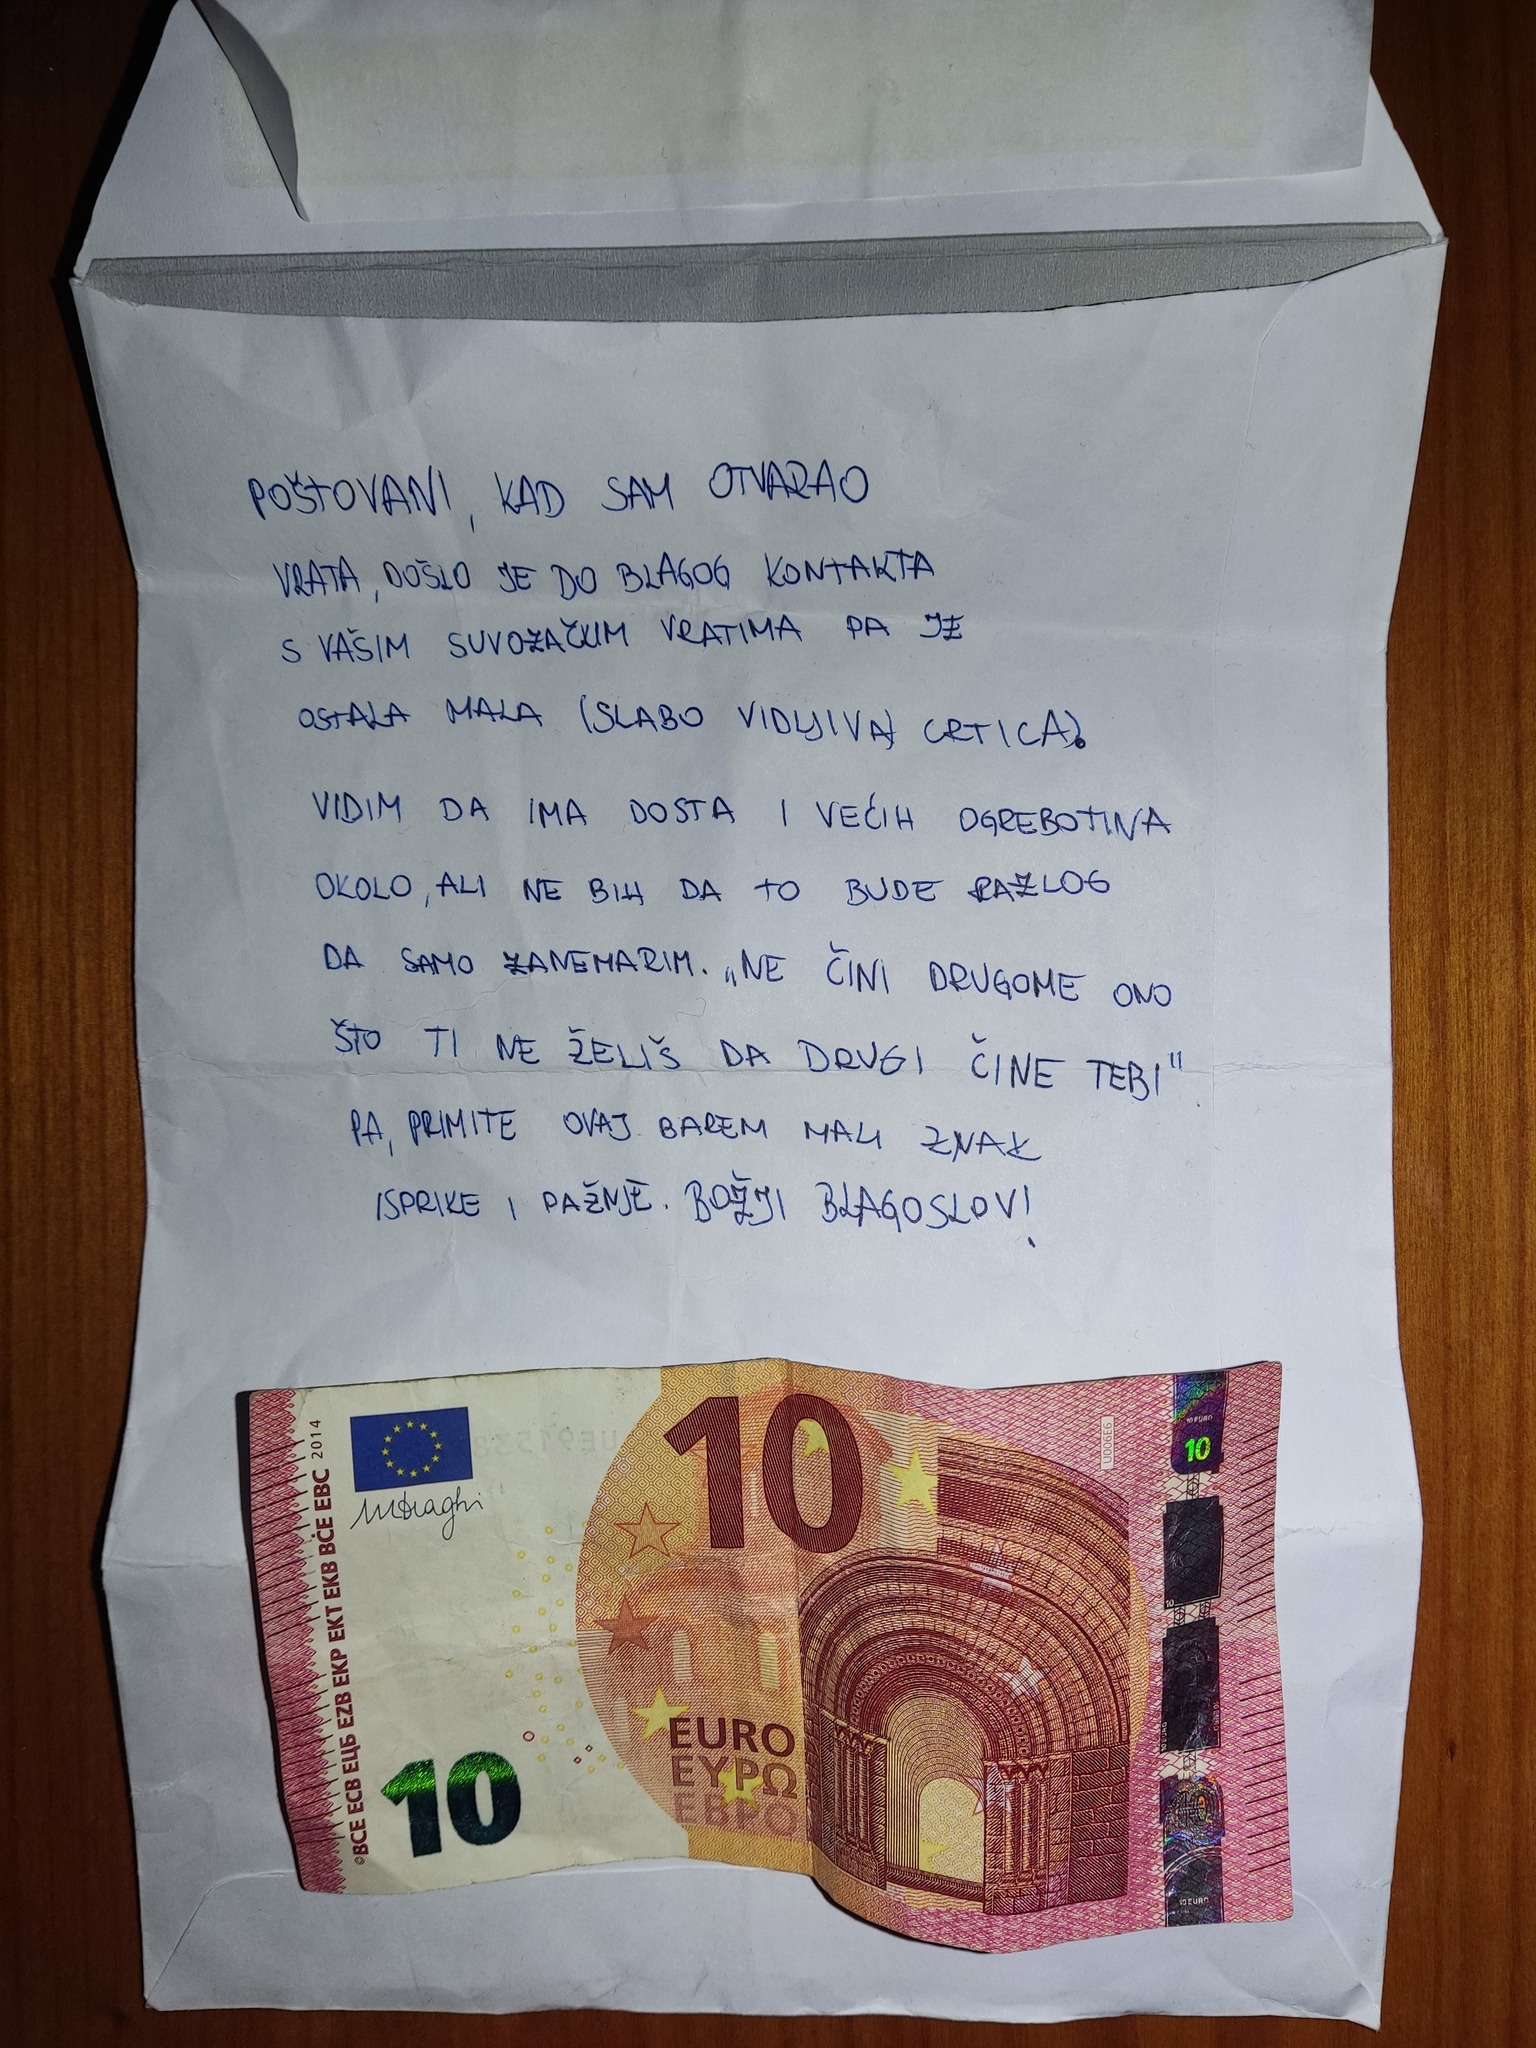 POŠTOVANI, KAD SAM OTVARAO
VRATA, DOŠLO JE DO BLAGOG KONTAKTA
S VAŠIM SUVOZAČKIM VRATIMA PA JE
OSTALA MALA (SLABO VIDLJIVA) CRTICA).
VIDIM DA IMA DOSTA I VEĆIH OGREBOTINA
OKOLO, ALI NE BIH DA TO BUDE RAZLOG
DA SAMO ZANEMARIM. „NE ČINI DRUGOME ONO
ŠTO TI NE ŽELIŠ DA DRUGI ČINE TEBI".
PA, PRIMITE OVAJ BAREM MALI ZNAK
ISPRIKE I PAŽNJE. BOŽJI BLAGOSLOV!
10
©BCE ECB ЕЦБ EZB EKP EKT EKB BĊE EBC 2014
MDraghi
U006E6
10 EURO
10
EURO
ΕΥΡΩ
ЕВРО
10
10 EURO